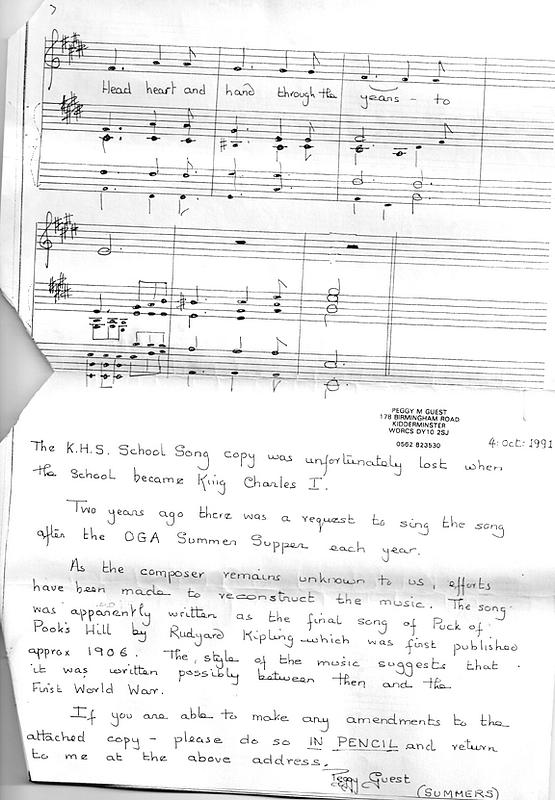 Head heart and hand through the years - to
PEGGY M GUEST
178 BIRMINGHAM ROAD
KIDDERMINSTER
WORCS DY10 2SJ
0562 823530
4: oct: 1991
The K.H.S. School Song copy was unfortunately lost when
the School became King Charles I.
Two years ago there was a request to sing the song
after the OGA Summer Supper each year.
As the composer remains unknown to us, efforts
have been made to reconstruct the music. The song
was apparently written as the final song of Puck of
Pook's Hill by Rudyard Kipling which was first published
approx 1906. The style of the music suggests that
it was written possibly between then and the
First World War.
If you are able to make any amendments to the
attached copy - please do so IN PENCIL and return
to me at the above address.
Peggy Guest
(SUMMERS)